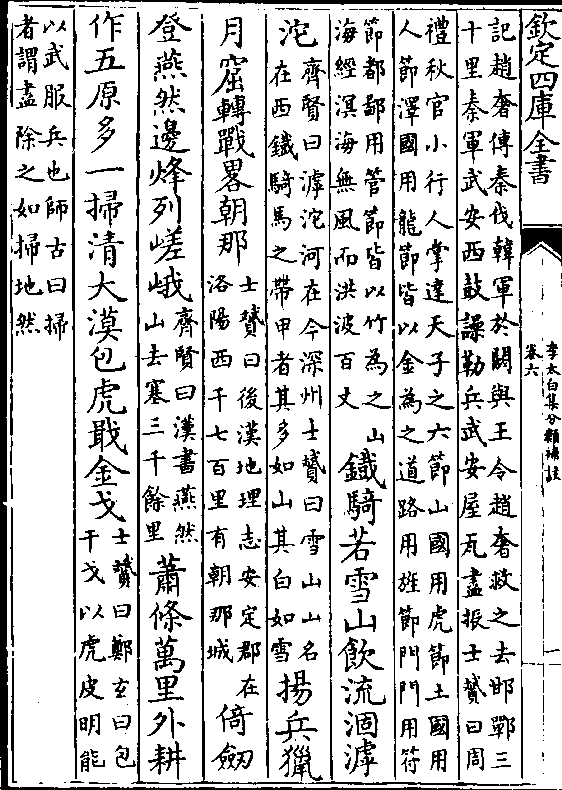 欽定四庫全書
李太白集分類補註
卷六
記趙奢傳秦伐韓軍於閼與王令趙奢救之去邯鄲三
十里秦軍武安西鼓譟勒兵武安屋瓦盡振士贇曰周
禮秋官小行人掌達天子之六節山國用虎節土國用
人節澤國用龍節皆以金為之道路用旌節門門用符
節都鄙用管節皆以竹為之山
海經溟海無風而洪波百丈
鐵騎若雪山飲流涸滹
沱
齊賢曰滹沱河在今深州士贇曰雪山山名
在西鐵騎馬之帶甲者其多如山其白如雪
揚兵獵
月窟轉戰畧朝那
士贇曰後漢地理志安定郡在
洛陽西千七百里有朝那城
倚劔
登燕然邊烽列嵯峨
齊賢曰漢書燕然
山去塞三千餘里
蕭條萬里外耕
作五原多一掃清大漠包虎戢金戈
士贇曰鄭玄曰包
干戈以虎皮明能
以武服兵也師古曰掃
者謂盡除之如掃地然